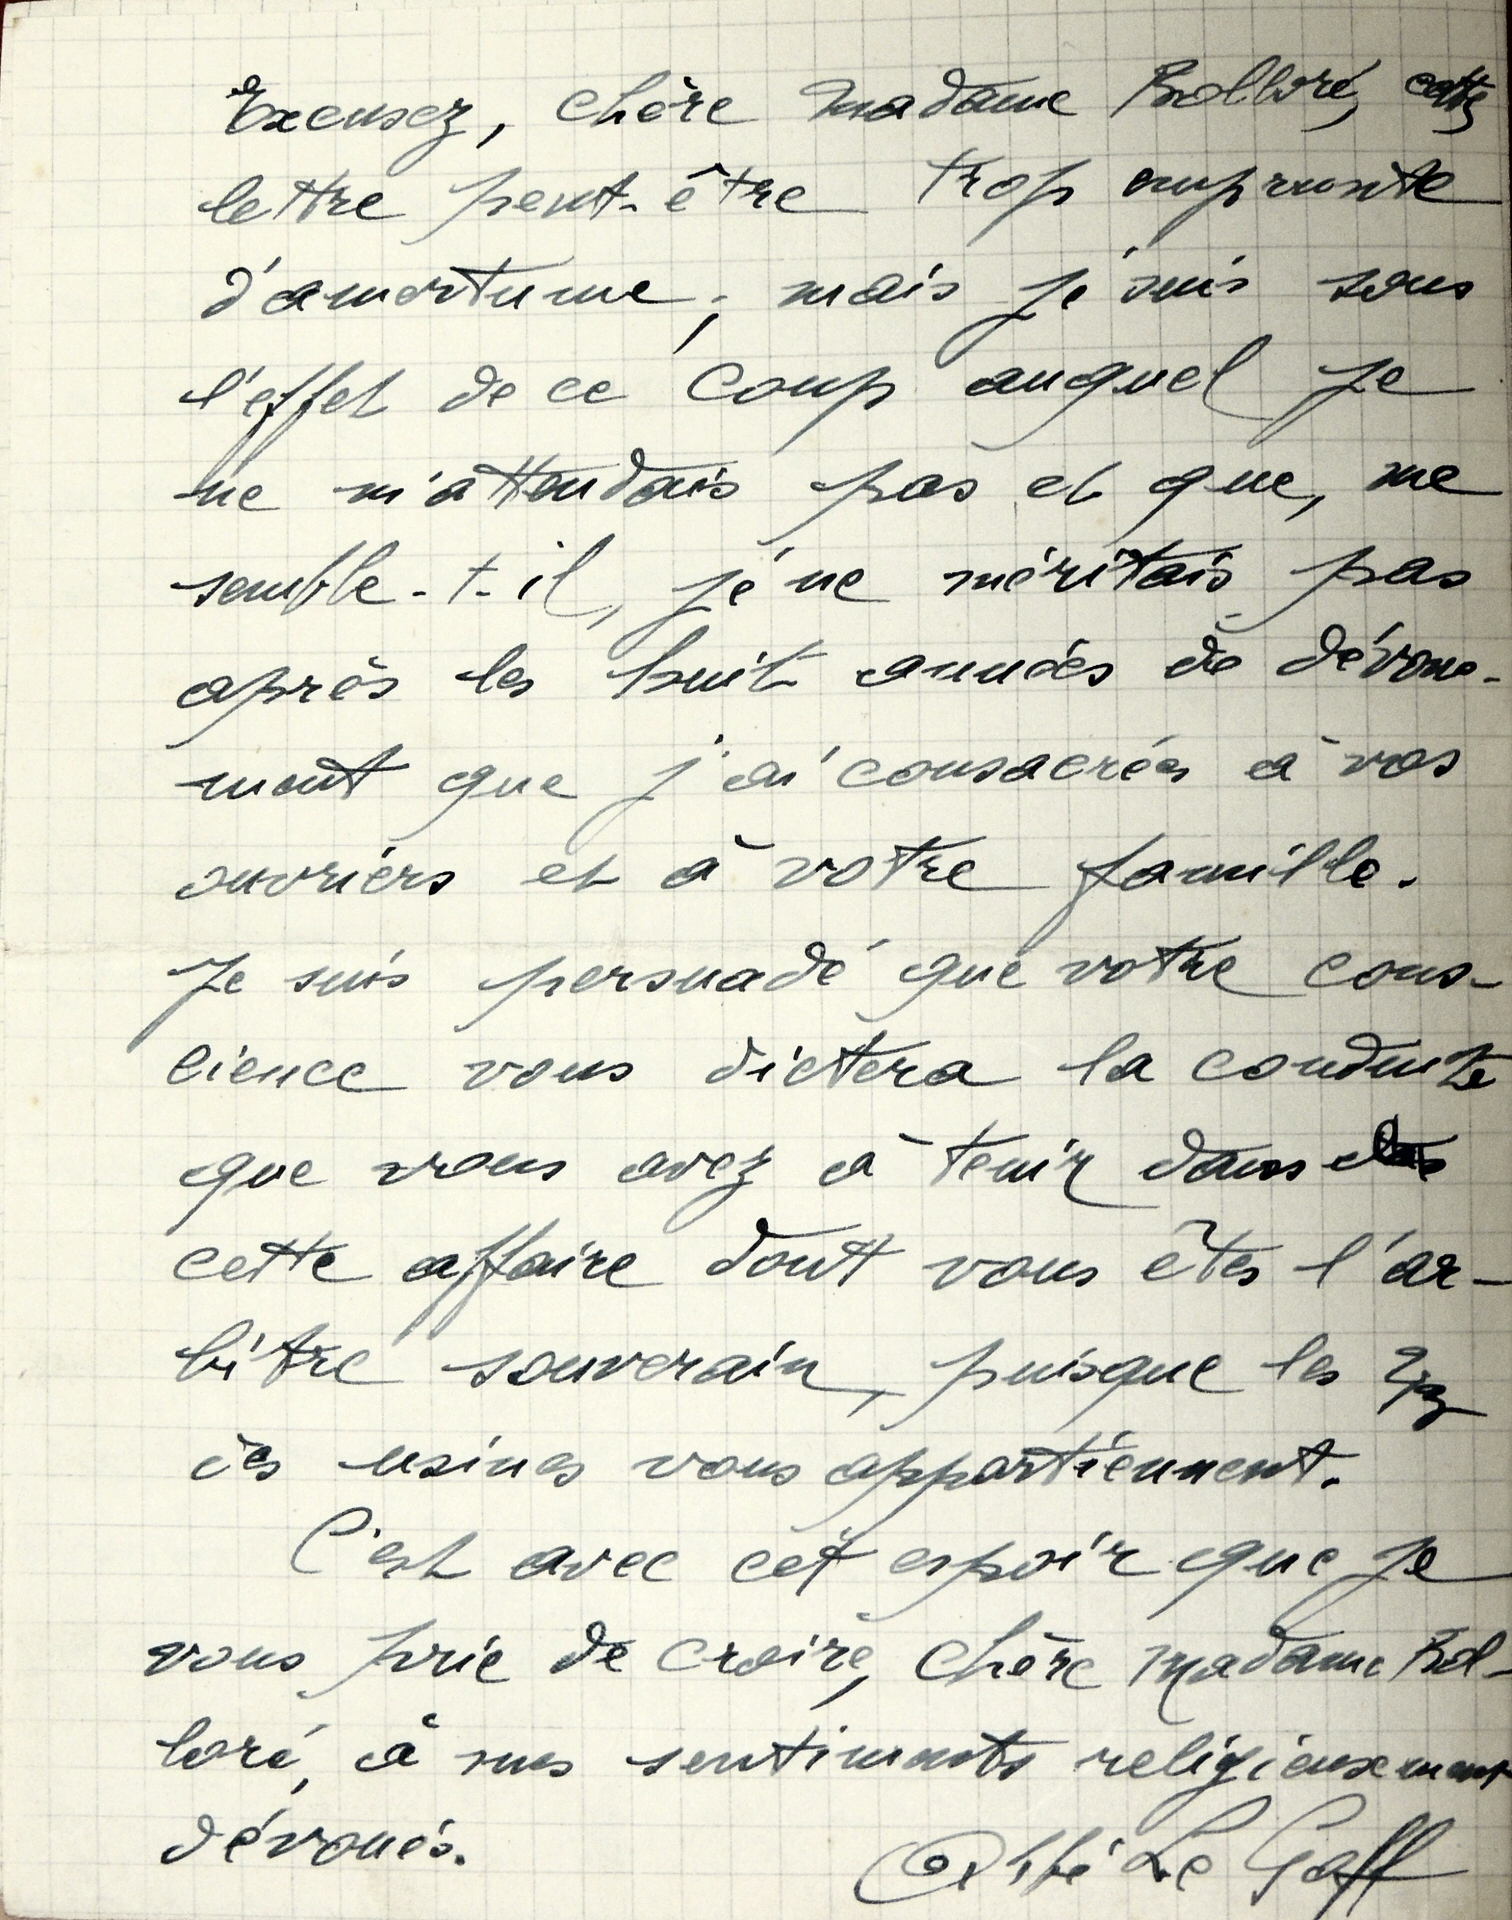 Excusez, chère Madame Bolloré, cette
lettre peut-être trop empreinte
d'amertume ; mais je suis sous
l'effet de ce coup auquel je
ne m'attendais pas et que, me
semble-t-il, je ne méritais pas
après les huit années de dévoue-
ment que j'ai consacrées à vos
ouvriers et à votre famille.
Je suis persuadé que votre cons-
cience vous dictera la conduite
que vous avez à tenir dans
cette affaire dont vous êtes l'ar-
bitre souverain, puisque les
des usines vous appartiennent.
C'est avec cet espoir que je
vous prie de croire, chère Madame Bol-
loré, à mes sentiments religieusement
dévoués.
Abbé Le Goff